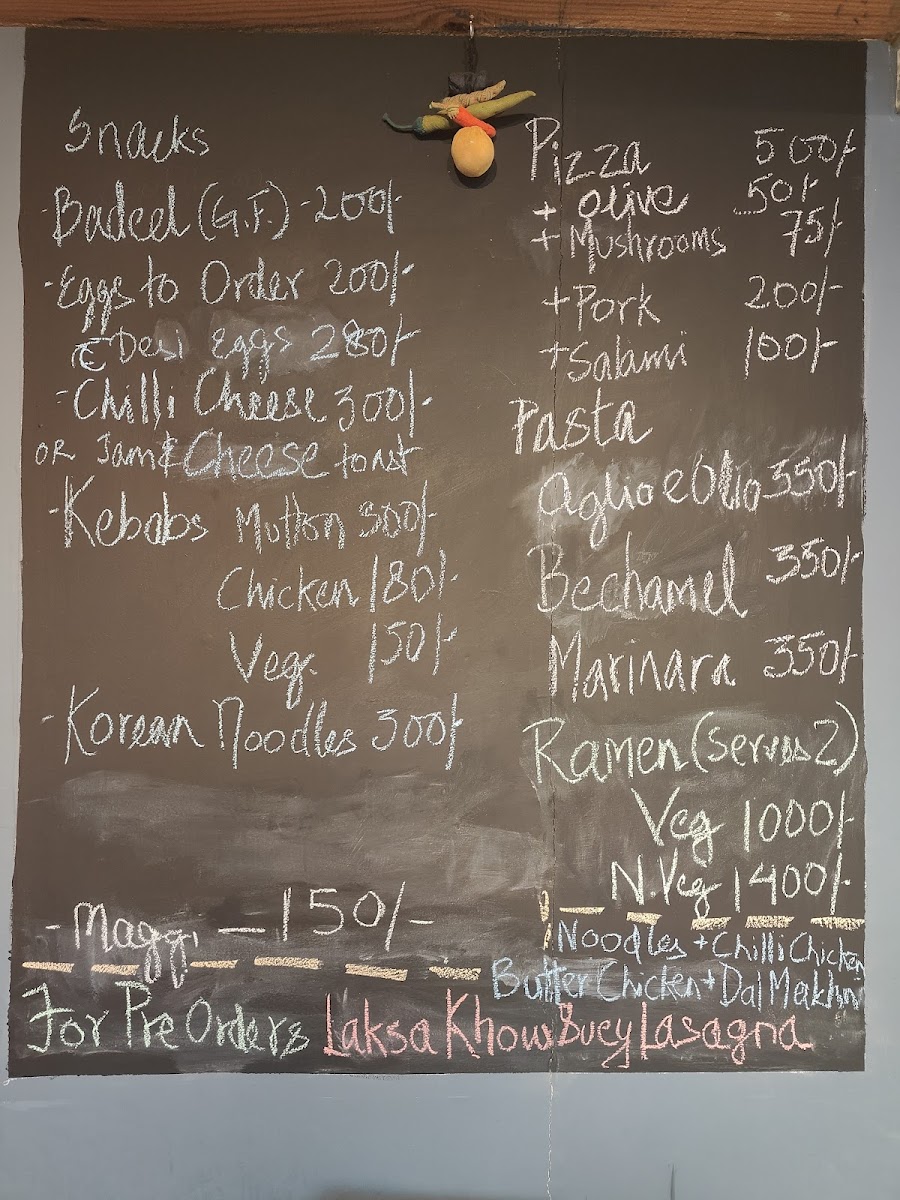 Snacks
- Badeel (G.F.) - 200/-
- Eggs to Order 200/-
c̄ Desi Eggs 280/-
- Chilli Cheese 300/-
OR Jam & Cheese toast
- Kebabs Mutton 300/-
Chicken 180/-
Veg. 150/-
- Korean Noodles 300/-
- Maggi — 150/-
Pizza 500/-
+ olive 50/-
+ Mushrooms 75/-
+ Pork 200/-
+ Salami 100/-
Pasta
aglio e Olio 350/-
Bechamel 350/-
Marinara 350/-
Ramen (Serves 2)
Veg 1000/-
N.Veg 1400/-
Noodles + Chilli Chicken
Butter Chicken + Dal Makhni
For Pre Orders Laksa Khow Suey Lasagna